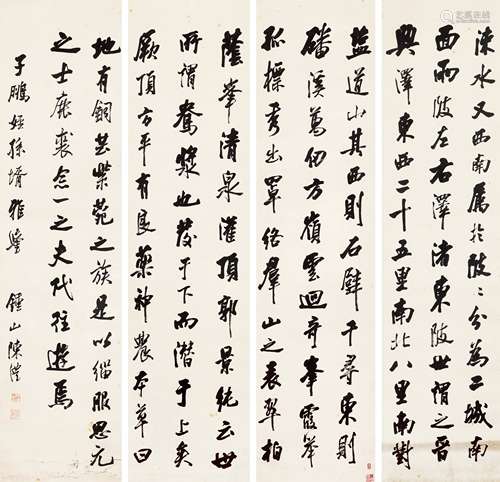 涑水又西南属於陂陂分為二城南
面兩陂左右澤渚東陂世謂之晋
興澤東西二十五里南北八里南對
盐道山其西則石壁千尋東則
磻溪萬仞方嶺雲迴奇峯霞舉
孤標秀出罩络羣山之表翠柏
蔭峯清泉灌頂郭景純云世
所謂鴦漿也發于下而潜于上矣
厥頂方平有良藥神農本草曰
地有銅芸紫菀之族是以缁服思元
之士鹿裘念一之夫代往遊焉
子鵬姪孫壻雅鑒
鍾山陳